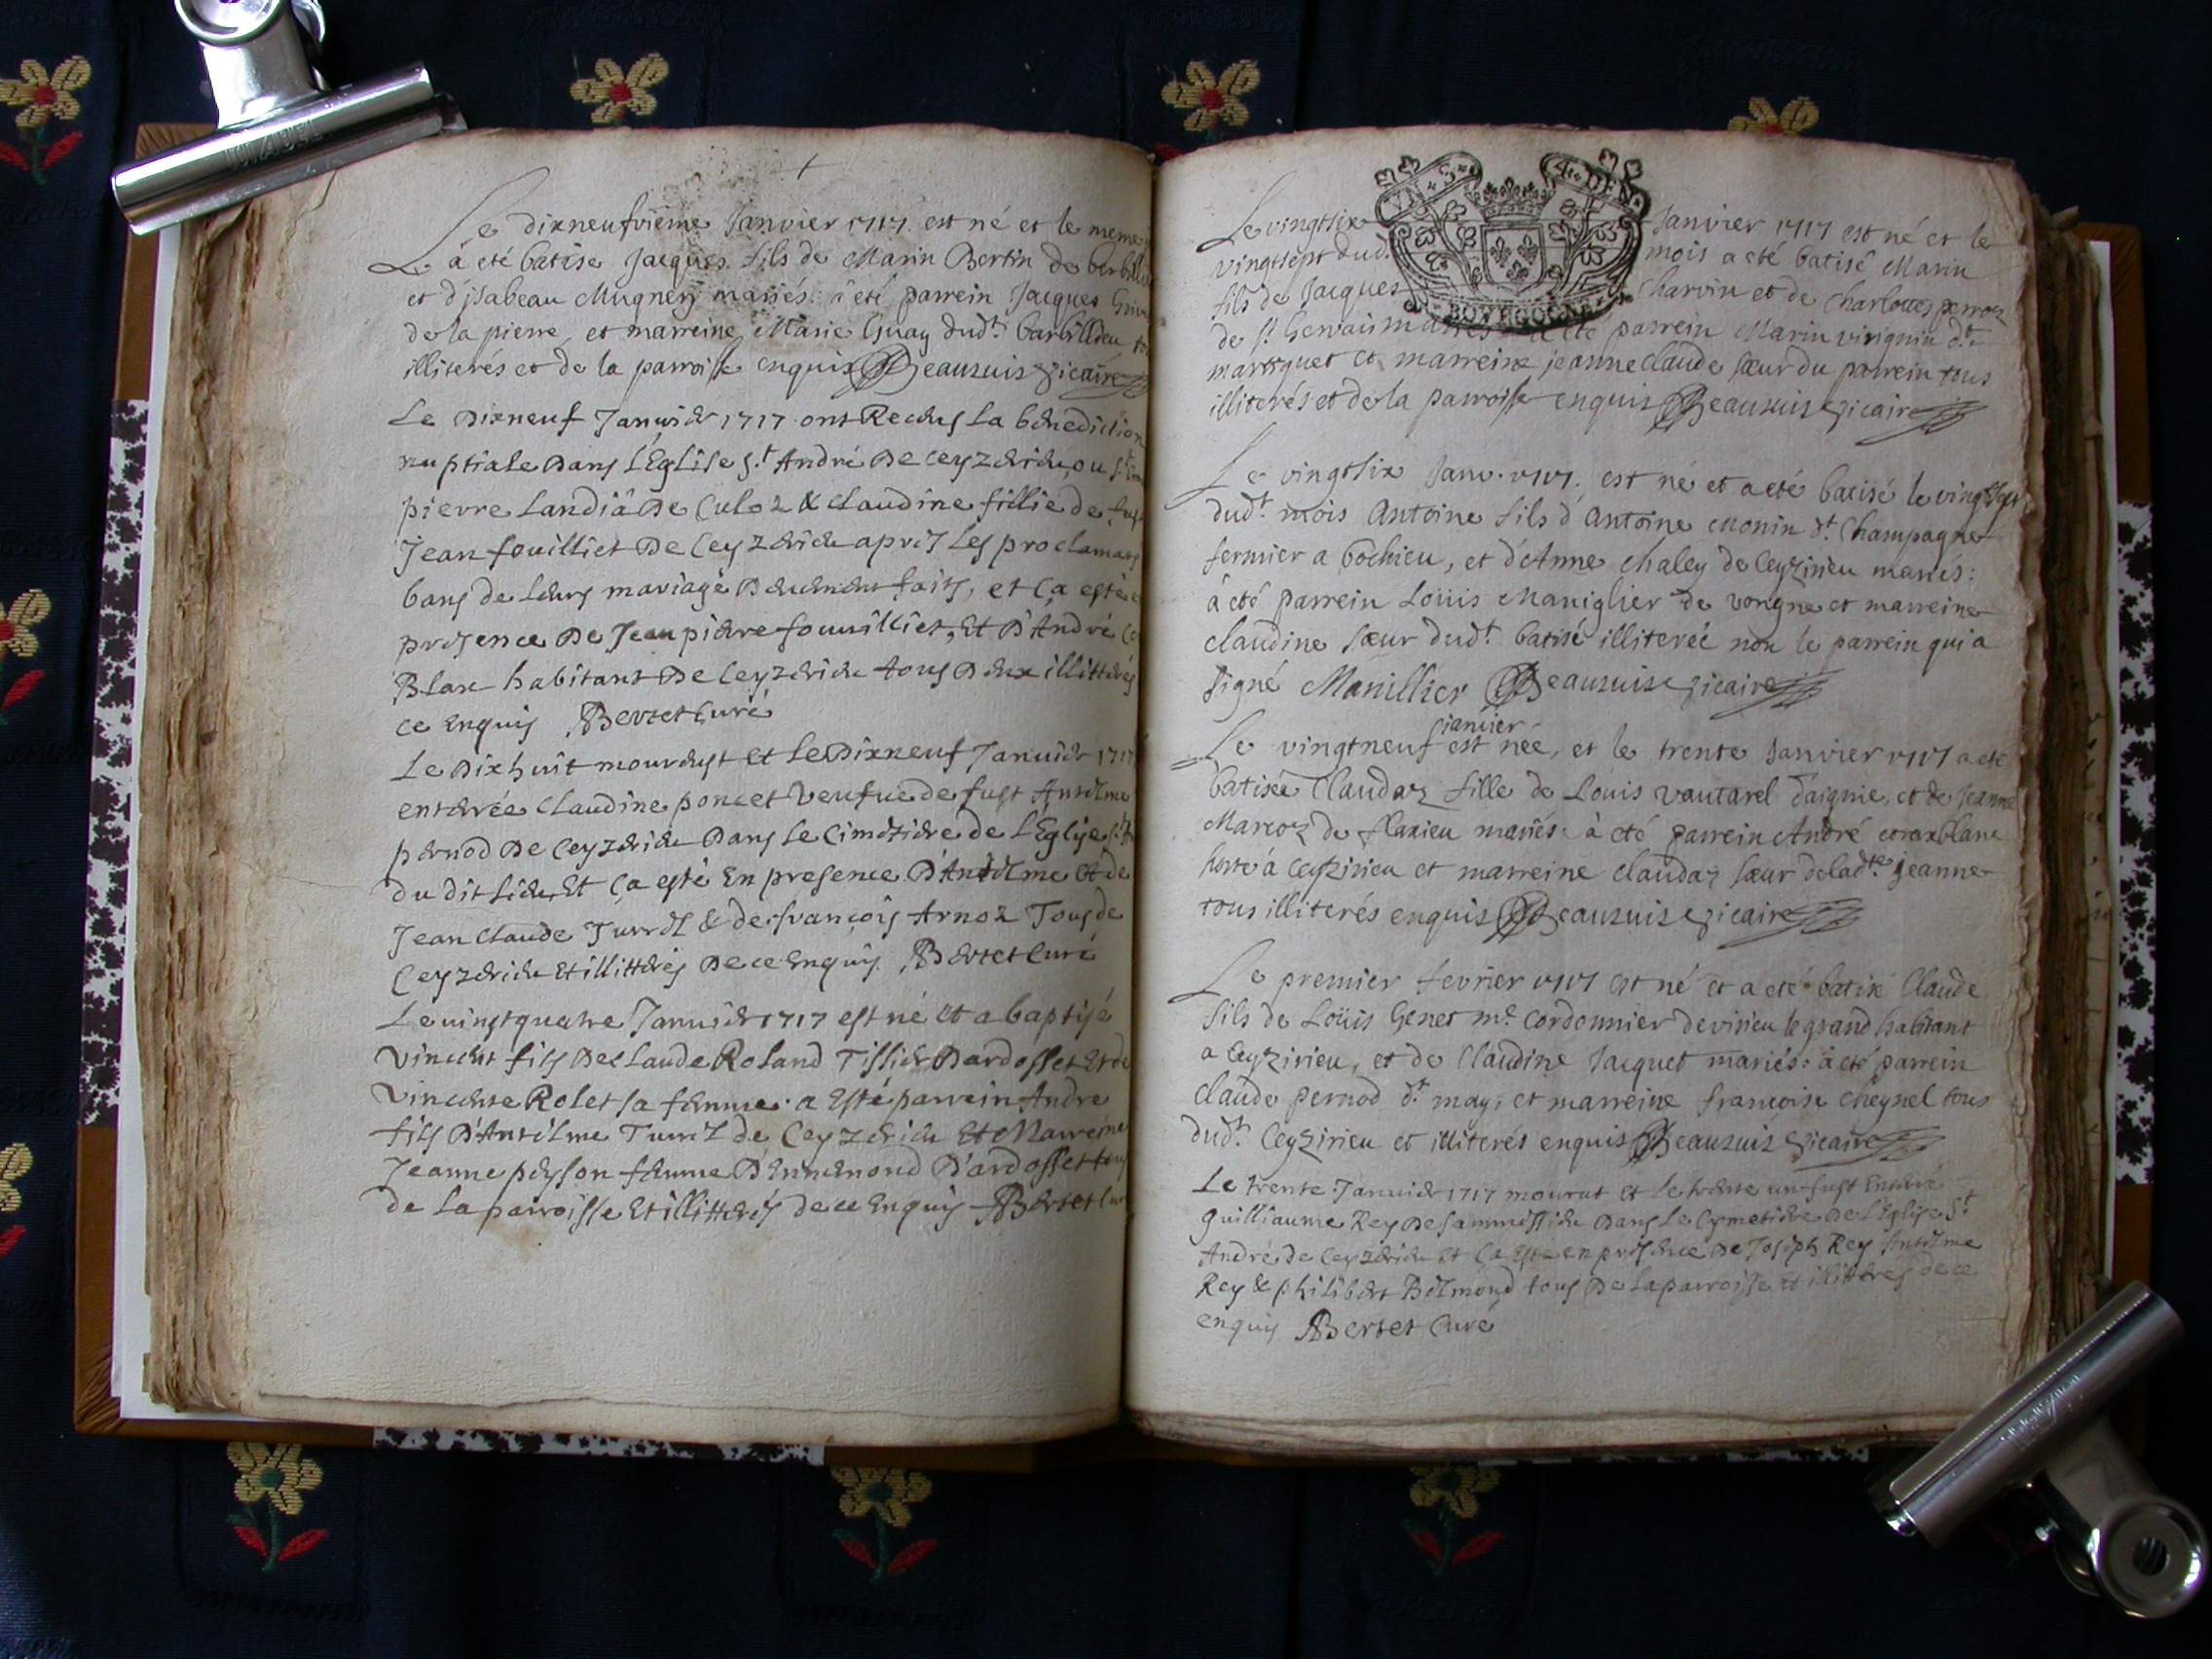 Le dixneufvième Janvier 1717. est né et le meme
a été batisé Jacques fils de Marin Bertin de
et d'jsabeau Mugnery mariés: a été parrein Jacques
de la pierre, et marreine Marie Guay dud.t barbillieu
illiterés et de la parroisse enquis Beausuis vicaire
Le Dixneuf Januier 1717 ont Receus La benediction
nuptiale Dans L'Eglise S.t André De Ceyzerieu, ou
pierre Landiâ De Culoz & Claudine fillie de
Jean fouilliet De Ceyzerieu apres Les proclamans
bans de Leurs mariage Deuement faits, et Ca esté
presence De Jean pierre fouuilliet, Et D'André
Blanc habitant De Ceyzerieu tous Deux illitterés
ce Enquis Bertet Curé
Le Dix huit mourust et Le Dixneuf Januier 1717
enterrée Claudine poncet Veufue de fust Antelme
pernod De Ceyzerieu Dans Le Cimetiere de L'Eglise
du dit Lieu, Et Ca esté En presence D'Antelme Et de
Jean Claude Turrel & de francois Arnoz Tous de
Ceyzerieu Et illitterés De ce Enquis Bertet Curé
Le uingt quatre Januier 1717 est né Et a baptisé
Vincent fils De Claude Roland Tissier D'ardosset Et de
Vincente Rolet sa femme. a Esté parrein André
fils D'Antelme Turrel de Ceyzerieu Et Marreine
Jeanne peysson femme D'Ennemond D'ardosset tous
de La parroisse Et illitterés de ce Enquis Bertet Cur
VN·S· 4·DEN
BOVRGOGNE
Le vingtsix Janvier 1717 est né et le
vingtsept dud. mois a été batisé Marin
fils de Jacques Charvin et de Charlotte perroz
de S.t Gervais mariés a été parrein Marin virignin d.t
martiguet et marreine jeanne Claude sœur du parrein tous
illiterés et de la parroisse enquis Beausuis vicaire
Le vingtsix Janv. 1717. est né et a été batisé le vingtsept
dud.t mois Antoine fils d'Antoine Monin d.t Champagne
fermier a bochieu, et d'Anne Chaley de Ceyzirieu mariés:
à été parrein Loüis Maniglier de vongne et marreine
Claudine sœur dud.t batisé illiterée non le parrein qui a
signé Manillier Beausuis vicaire
janvier
Le vingtneuf est née, et le trente Janvier 1717 a été
batisée Claudaz fille de Loüis vautarel d'aignie, et de Jeanne
Marcoz de flaxieu mariés: à été parrein André blanc
hoste à Ceyzirieu et marreine Claudaz sœur de lad.te Jeanne
tous illiterés enquis Beausuis vicaire
Le premier fevrier 1717 est né et a été batisé Claude
fils de Loüis Genet m.e Cordonnier de virieu le grand habitant
a Ceyzirieu, et de Claudine Jacquet mariés: à été parrein
Claude pernod d.t may, et marreine francoise Cheynel tous
dud.t Ceyzirieu et illiterés enquis Beausuis vicaire
Le trente Januier 1717 mourut et Le trente un fust Enterré
Guilliaume Rey De Sammissieu Dans Le Cymetiere De L'Eglise S.t
André de Ceyzerieu et Ca Esté en presence De Joseph Rey Antelme
Rey & philibert Belmond tous De La parroisse et illitteres de ce
enquis Bertet Curé